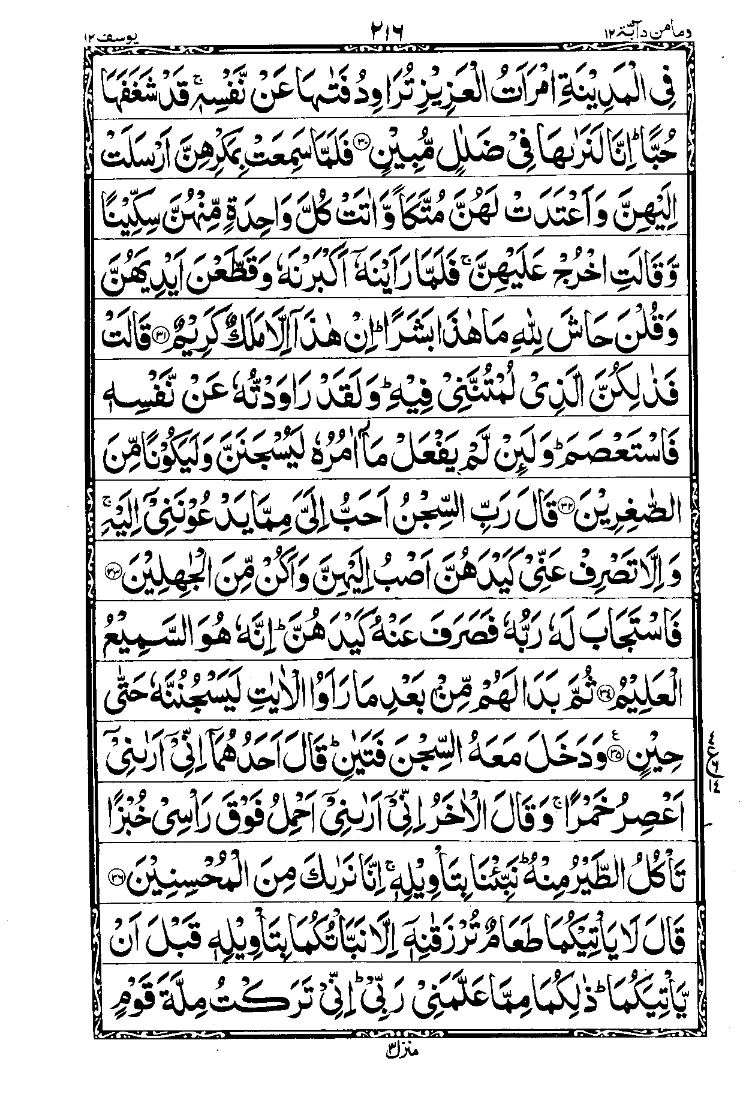 وما من دآبة ١٢ ٢١٦ يوسف ١٢
فِی الْمَدِیْنَةِ امْرَاَتُ الْعَزِیْزِ تُرَاوِدُ فَتٰىهَا عَنْ نَّفْسِهٖ ۚ قَدْ شَغَفَهَا
حُبًّا ؕ اِنَّا لَنَرٰىهَا فِیْ ضَلٰلٍ مُّبِیْنٍ ﴿۳۰﴾ فَلَمَّا سَمِعَتْ بِمَكْرِهِنَّ اَرْسَلَتْ
اِلَیْهِنَّ وَ اَعْتَدَتْ لَهُنَّ مُتَّكَاً وَّ اٰتَتْ كُلَّ وَاحِدَةٍ مِّنْهُنَّ سِكِّیْنًا
وَّ قَالَتِ اخْرُجْ عَلَیْهِنَّ ۚ فَلَمَّا رَاَیْنَهٗۤ اَكْبَرْنَهٗ وَ قَطَّعْنَ اَیْدِیَهُنَّ
وَ قُلْنَ حَاشَ لِلّٰهِ مَا هٰذَا بَشَرًا ؕ اِنْ هٰذَاۤ اِلَّا مَلَكٌ كَرِیْمٌ ﴿۳۱﴾ قَالَتْ
فَذٰلِكُنَّ الَّذِیْ لُمْتُنَّنِیْ فِیْهِ ؕ وَ لَقَدْ رَاوَدْتُّهٗ عَنْ نَّفْسِهٖ
فَاسْتَعْصَمَ ؕ وَ لَىِٕنْ لَّمْ یَفْعَلْ مَاۤ اٰمُرُهٗ لَیُسْجَنَنَّ وَ لَیَكُوْنًا مِّنَ
الصّٰغِرِیْنَ ﴿۳۲﴾ قَالَ رَبِّ السِّجْنُ اَحَبُّ اِلَیَّ مِمَّا یَدْعُوْنَنِیْۤ اِلَیْهِ ۚ
وَ اِلَّا تَصْرِفْ عَنِّیْ كَیْدَهُنَّ اَصْبُ اِلَیْهِنَّ وَ اَكُنْ مِّنَ الْجٰهِلِیْنَ ﴿۳۳﴾
فَاسْتَجَابَ لَهٗ رَبُّهٗ فَصَرَفَ عَنْهُ كَیْدَهُنَّ ؕ اِنَّهٗ هُوَ السَّمِیْعُ
الْعَلِیْمُ ﴿۳۴﴾ ثُمَّ بَدَا لَهُمْ مِّنْۢ بَعْدِ مَا رَاَوُا الْاٰیٰتِ لَیَسْجُنُنَّهٗ حَتّٰى
حِیْنٍ ﴿۳۵﴾ ع وَ دَخَلَ مَعَهُ السِّجْنَ فَتَیٰنِ ؕ قَالَ اَحَدُهُمَاۤ اِنِّیْۤ اَرٰىنِیْۤ
اَعْصِرُ خَمْرًا ۚ وَ قَالَ الْاٰخَرُ اِنِّیْۤ اَرٰىنِیْۤ اَحْمِلُ فَوْقَ رَاْسِیْ خُبْزًا
تَاْكُلُ الطَّیْرُ مِنْهُ ؕ نَبِّئْنَا بِتَاْوِیْلِهٖ ۚ اِنَّا نَرٰىكَ مِنَ الْمُحْسِنِیْنَ ﴿۳۶﴾
قَالَ لَا یَاْتِیْكُمَا طَعَامٌ تُرْزَقٰنِهٖۤ اِلَّا نَبَّاْتُكُمَا بِتَاْوِیْلِهٖ قَبْلَ اَنْ
یَّاْتِیَكُمَا ؕ ذٰلِكُمَا مِمَّا عَلَّمَنِیْ رَبِّیْ ؕ اِنِّیْ تَرَكْتُ مِلَّةَ قَوْمٍ
منزل ٣